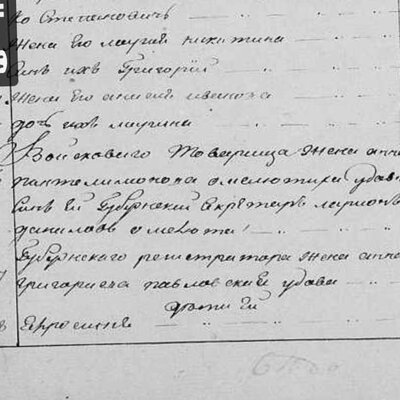 ко Степановичъ
Жена Его мария никитина
Сынъ ихъ Григорий
Жена Его ивановa
дочь ихъ марина
Войсковаго Товарища Жена анна
пантелимонова омелютиха удава
Сынъ Ей Губернский Секретарь ларионъ
даниловъ омелюта
Губернскаго регистратора Жена анна
григориева павловская удова
дети Ей
Ефросиния